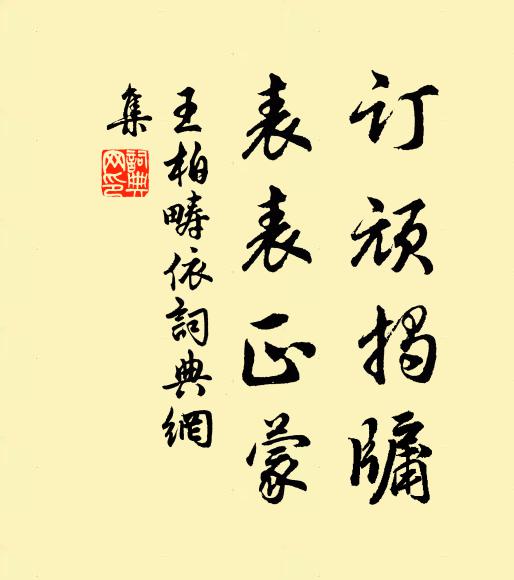 订顽揭牖
表表正蒙
王柏畴依詞典網
集
詞典網印